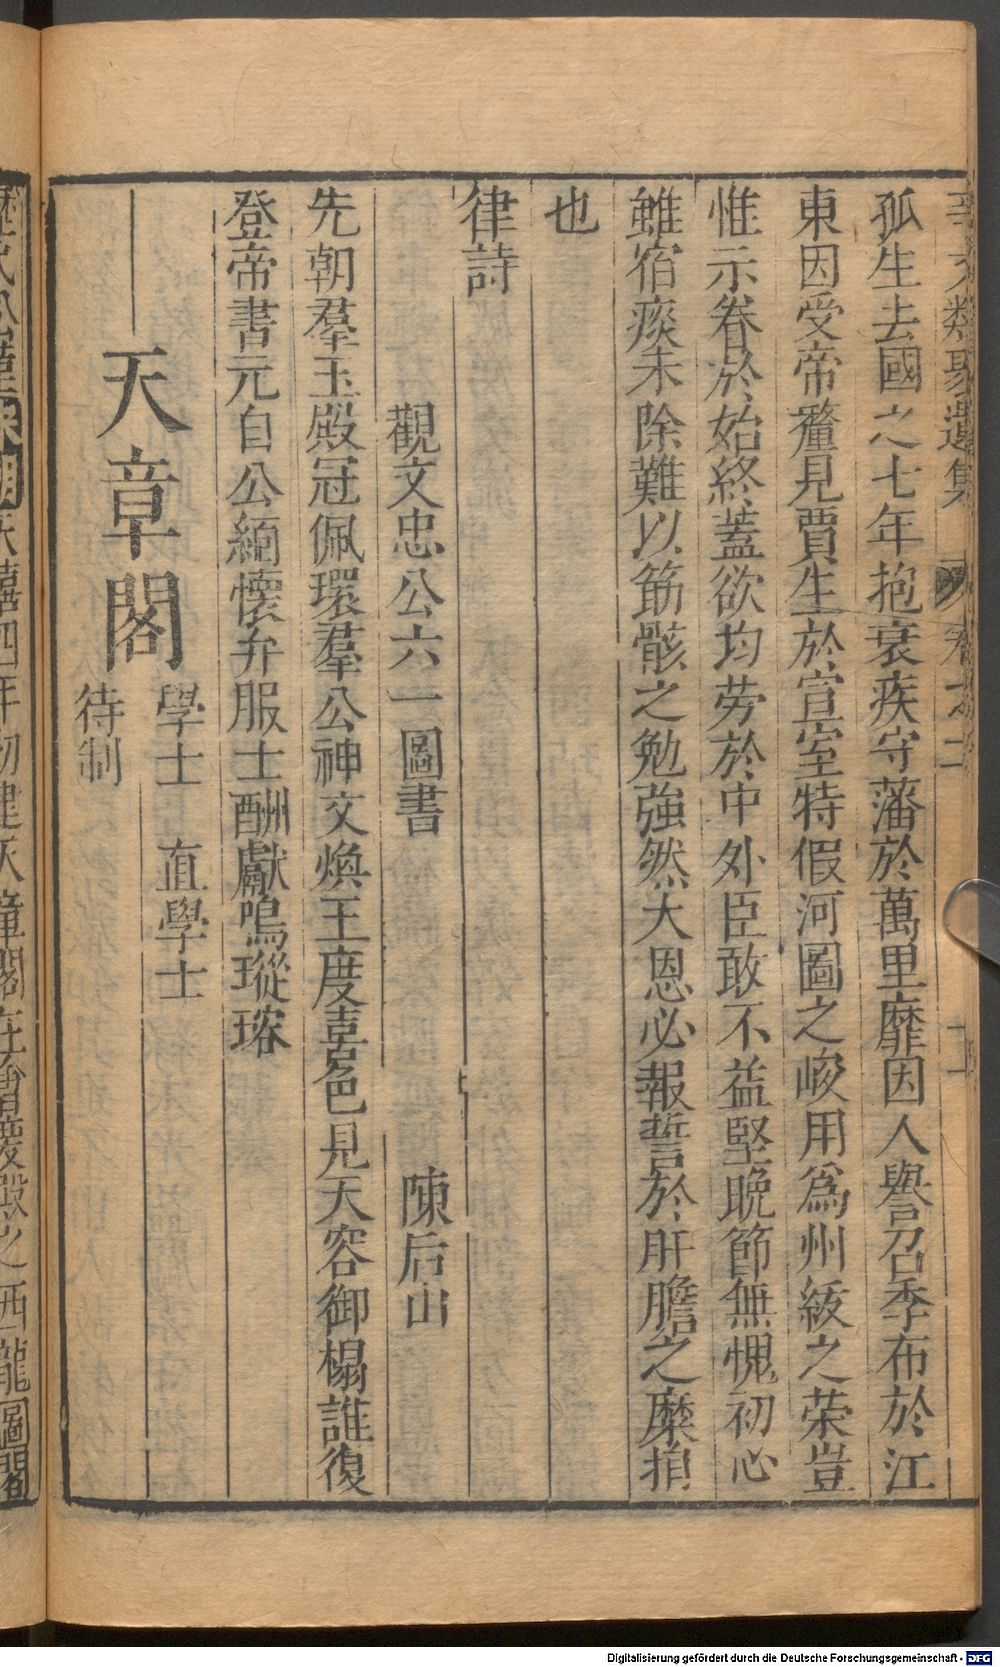 事文類聚遺集 卷之二 十二
孤生去國之七年抱衰疾守藩於萬里靡因人譽召季布於江
東因受帝釐見賈生於宣室特假河圖之峻用爲州紱之荣豈
惟示眷於始終蓋欲均勞於中外臣敢不益堅晩節無愧初心
雖宿瘼未除難以筋骸之勉強然大恩必報誓於肝膽之糜捐
也
律詩
觀文忠公六一圖書 陳后山
先朝羣玉殿冠佩環羣公神文煥王度喜色見天容御榻誰復
登帝書元自公緬懷弁服士酬獻鳴瑽瑢
天章閣 學士 直學士
待制
天禧四年初建天章閣在會慶殿之西龍圖閣
Digitalisierung gefördert durch die Deutsche Forschungsgemeinschaft - DFG